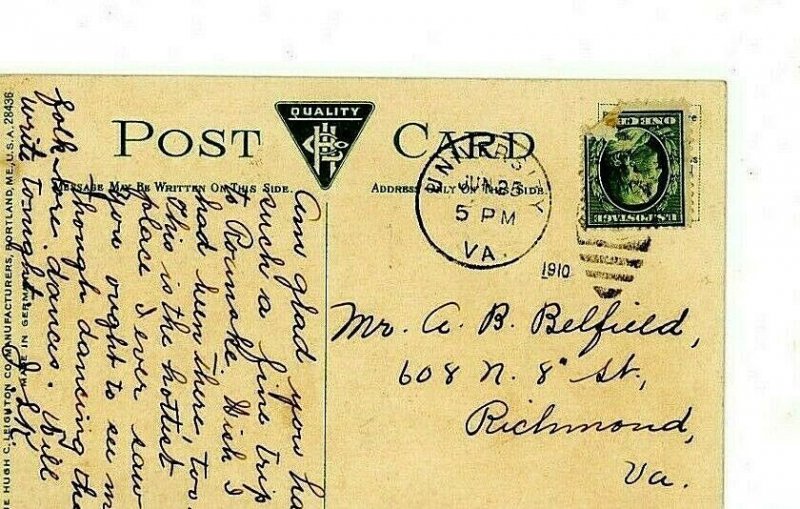 QUALITY
POST CARD
MESSAGE MAY BE WRITTEN ON THIS SIDE.
ADDRESS ONLY ON THIS SIDE.
UNIVERSITY
JUN 25
5 PM
VA.
1910
U.S. POSTAGE
ONE CE
Am glad you ha
such a fine trip
to Roanoke. Wish I
had been there, too
This is the hottest
place I ever saw
You ought to see m
though dancing the
folk-lore dances. Will
write tonight.
Mr. A. B. Belfield,
608 N. 8" St.,
Richmond,
Va.
HUGH C. LEIGHTON CO., MANUFACTURERS, PORTLAND, ME., U.S.A. 28436
MADE IN GERMANY